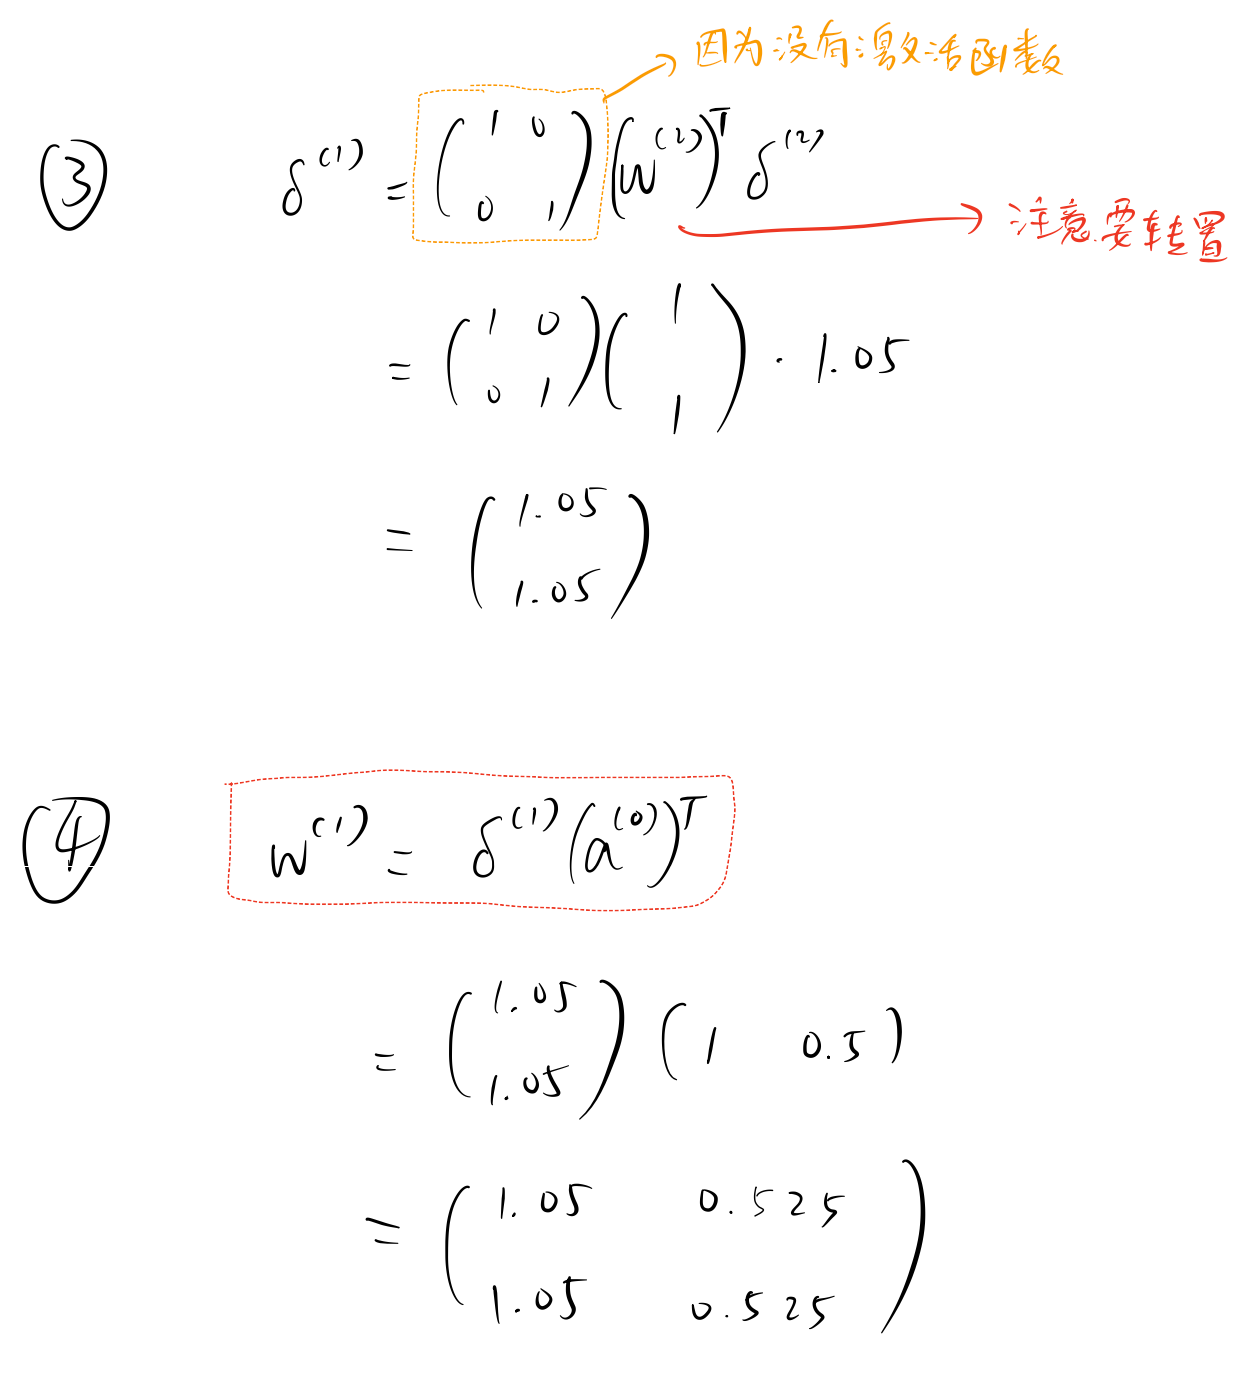 因为没有激活函数
③ δ^(1) = ( 1 0 ; 0 1 ) (w^(2))^T δ^(2)
注意要转置
= ( 1 0 ; 0 1 ) ( 1 ; 1 ) · 1.05
= ( 1.05 ; 1.05 )
④ w^(1) = δ^(1) (a^(0))^T
= ( 1.05 ; 1.05 ) ( 1 0.5 )
= ( 1.05 0.525 ; 1.05 0.525 )